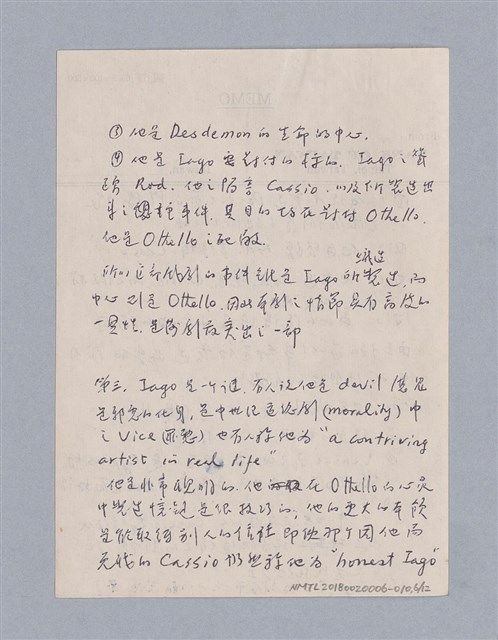 ③ 他是 Desdemon 的生命的中心.
④ 他是 Iago 要對付的標的. Iago 之
Rod. 他之 Cassio. 以及所製造出
來之 事件, 其目的均在對付 Othello.
他是 Othello 之
所以這齣戲劇的事件 是 Iago 所製造, 而
織造
中心則是 Othello. 因此本劇之情節具有高度的
一貫性. 是 劇最突出之一部
第三. Iago 是一個謎. 有人說他是 devil 惡魔
是邪惡的化身, 是中世紀道德劇 (morality) 中
之 Vice (罪惡) 也有人稱他為 "a contriving
artist in real life"
他是非常聰明的. 他 在 Othello 的心靈
中 是很技巧的, 他的更大的本領
是能取得別人的信任 即 那個因他而
的 Cassio 仍然稱他為 "honest Iago"
MEMO
NMTL20180020006-010,6/12